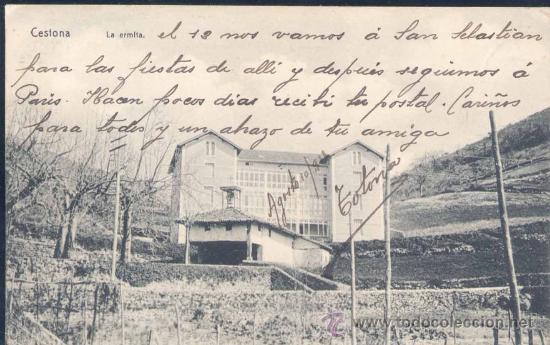 Cestona La ermita. el 12 nos vamos á San Sebastian
para las fiestas de alli y después seguimos á
Paris. Hacen pocos dias recibi tu postal. Cariños
para todos y un abazo de tu amiga
Totona
Agosto
todocoleccion
www.todocoleccion.net